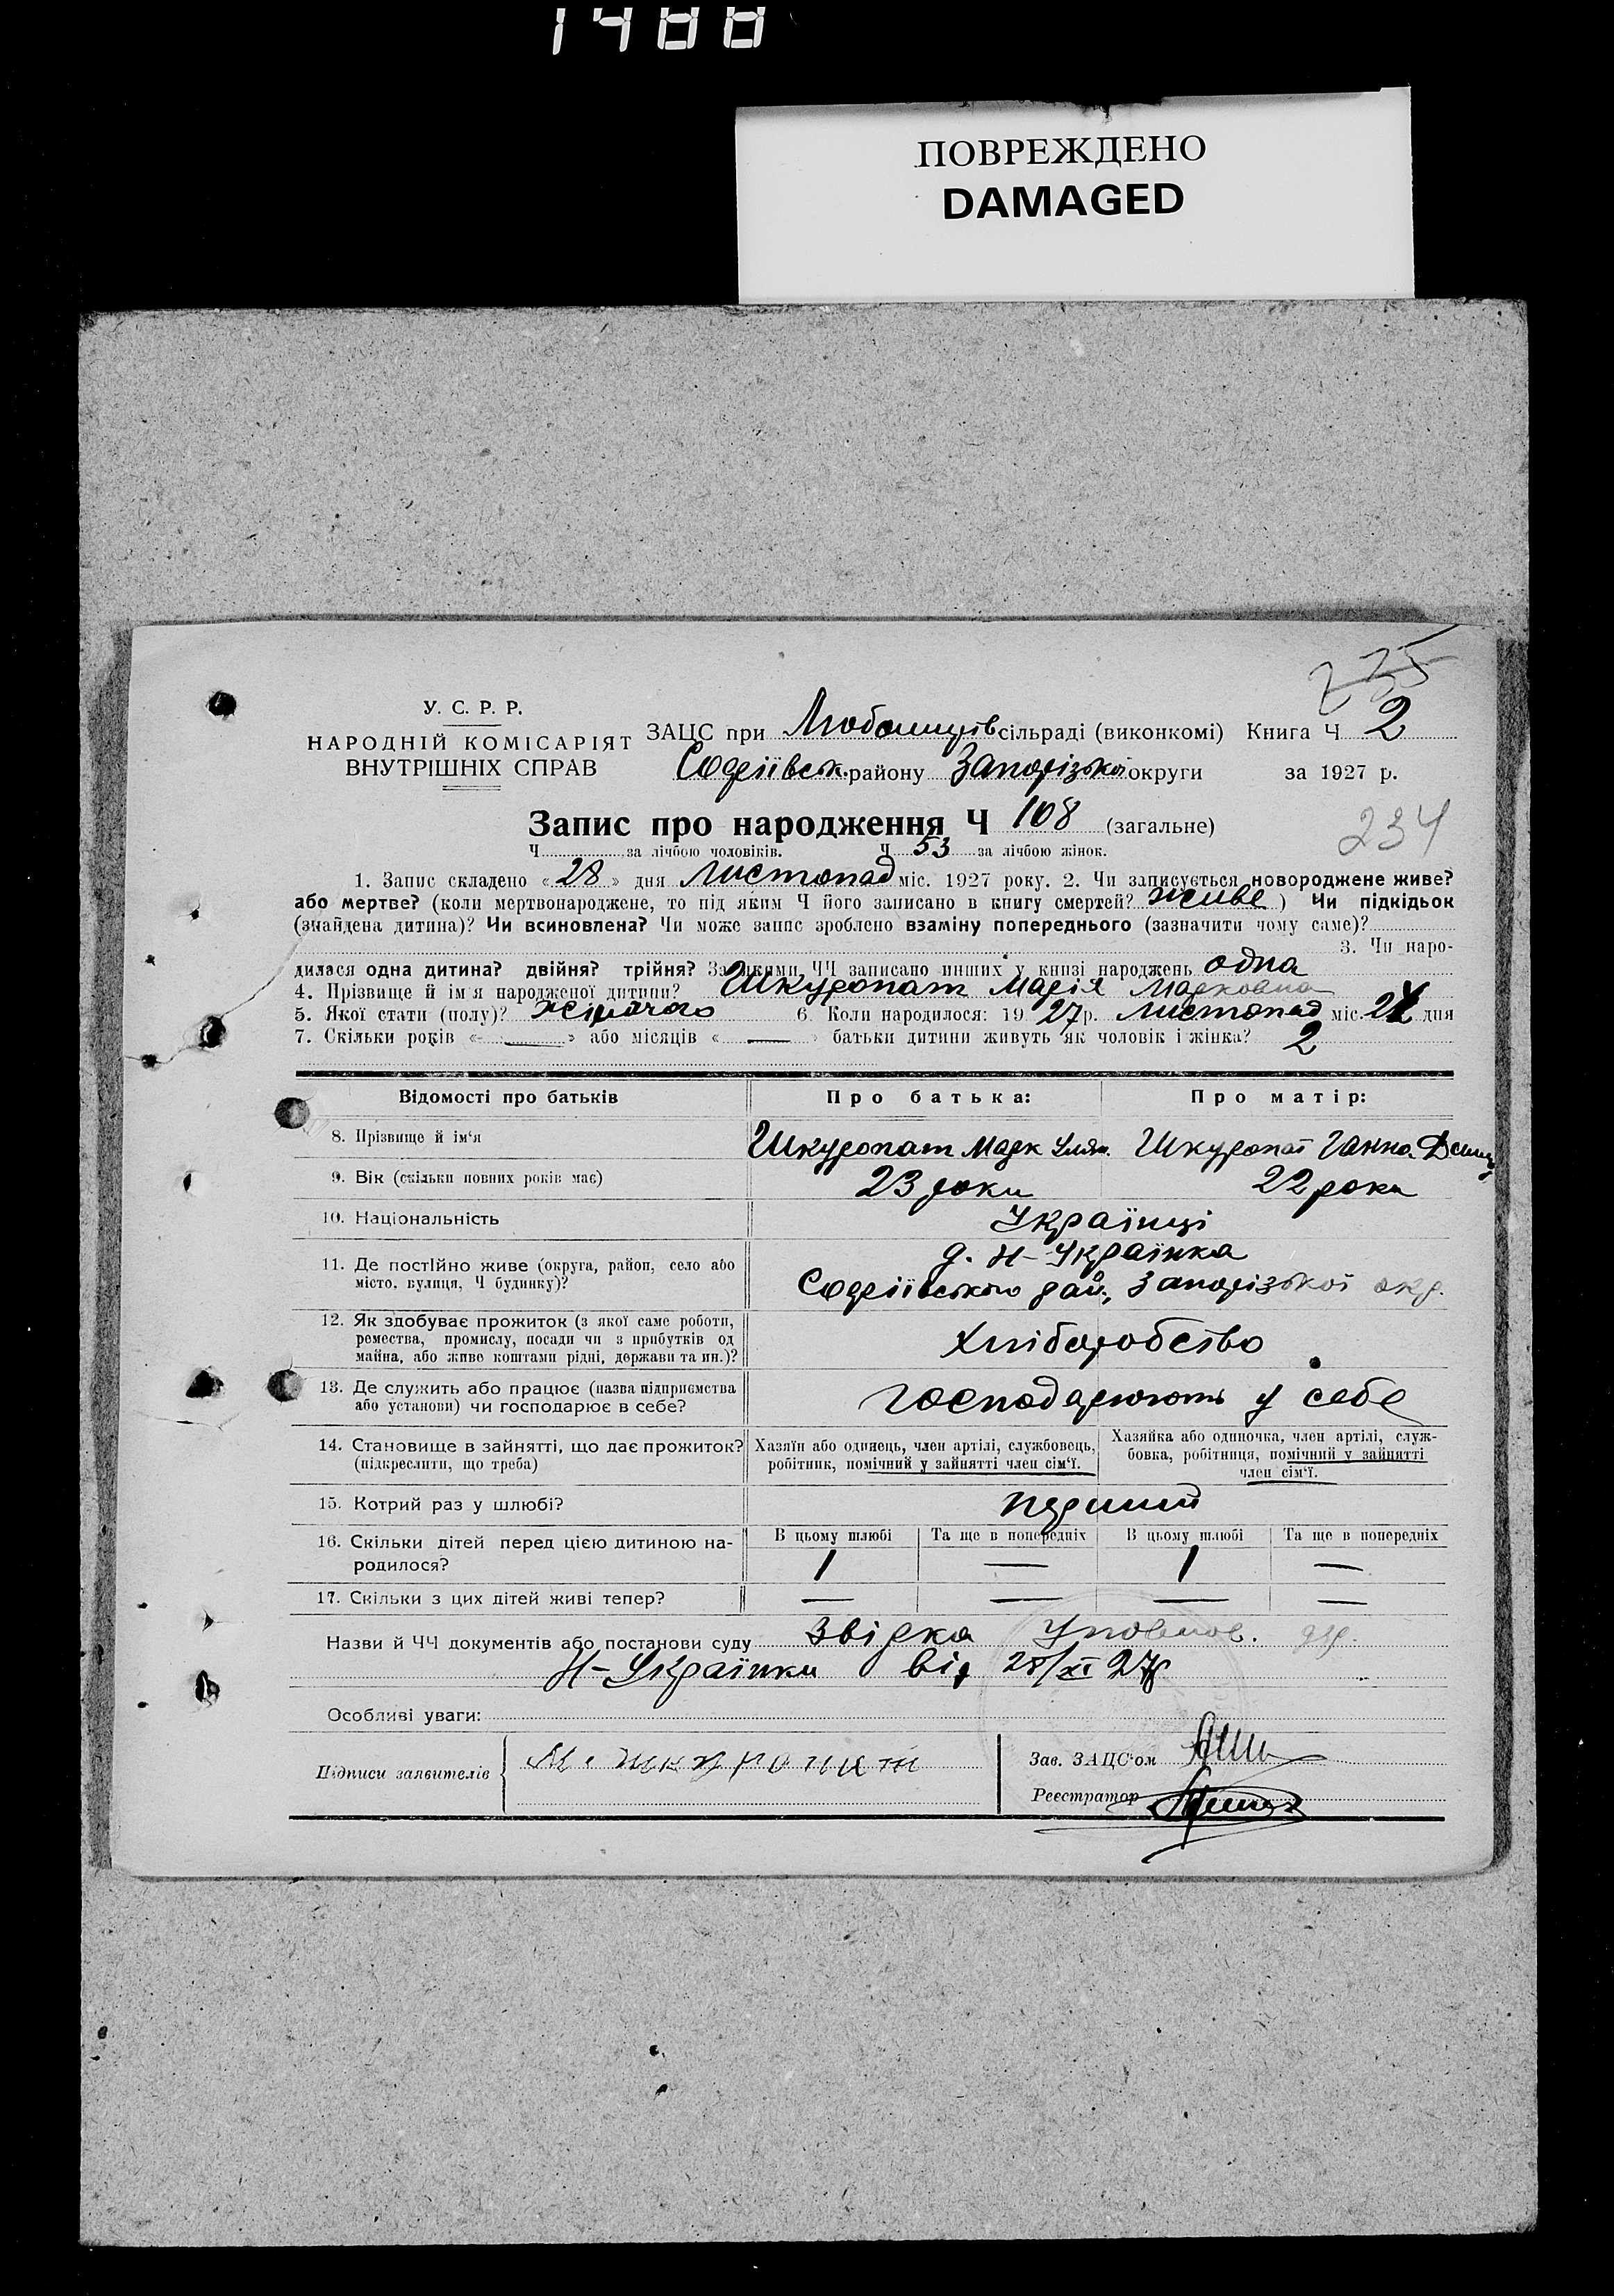 1488
ПОВРЕЖДЕНО
DAMAGED
225
У. С. Р. Р.
НАРОДНІЙ КОМІСАРІЯТ
ВНУТРІШНІХ СПРАВ
ЗАЦС при Любомирів сільраді (виконкомі) Книга Ч 2
Софіївськ. району Запорізької округи за 1927 р.
Запис про народження Ч 108 (загальне)
234
Ч за лічбою чоловіків. Ч 53 за лічбою жінок.
1. Запис складено «28» дня Листопад міс. 1927 року. 2. Чи записується новороджене живе?
або мертве? (коли мертвонароджене, то під яким Ч його записано в книгу смертей? живе) Чи підкідьок
(знайдена дитина)? Чи всиновлена? Чи може запис зроблено взаміну попереднього (зазначити чому саме)?
3. Чи наро-
дилася одна дитина? двійня? трійня? За якими ЧЧ записано инших у книзі народжень одна
4. Прізвище й ім'я народженої дитини? Шкуропат Марія Марковна
5. Якої стати (полу)? жіночого 6. Коли народилося: 1927 р. листопад міс. дня
7. Скільки років «—» або місяців «—» батьки дитини живуть як чоловік і жінка? 2
Відомості про батьків Про батька: Про матір:
8. Прізвище й ім'я Шкуропат Марк Шкуропат Ганна
9. Вік (скільки повних років має) 23 роки 22 роки
10. Національність Українці
11. Де постійно живе (округа, район, село або
місто, вулиця, Ч будинку)?
д. Н-Українка
Софіївського рай., Запорізької окр.
12. Як здобуває прожиток (з якої саме роботи,
ремества, промислу, посади чи з прибутків од
майна, або живе коштами рідні, держави та ин.)?
Хліборобство
13. Де служить або працює (назва підприємства
або установи) чи господарює в себе?
господарюють у себе
14. Становище в зайнятті, що дає прожиток?
(підкреслити, що треба)
Хазяїн або одинець, член артілі, службовець,
робітник, помічний у зайнятті член сім'ї.
Хазяйка або одиночка, член артілі, служ-
бовка, робітниця, помічний у зайнятті
член сім'ї.
15. Котрий раз у шлюбі? перший
16. Скільки дітей перед цією дитиною на-
родилося?
В цьому шлюбі Та ще в попередніх В цьому шлюбі Та ще в попередніх
1 — 1 —
17. Скільки з цих дітей живі тепер? — — — —
Назви й ЧЧ документів або постанови суду Звірка Уповнов.
Н-Українки від 28/XI 27р
Особливі уваги:
Підписи заявителів М. Шкуропат
Зав. ЗАЦС'ом
Реєстратор